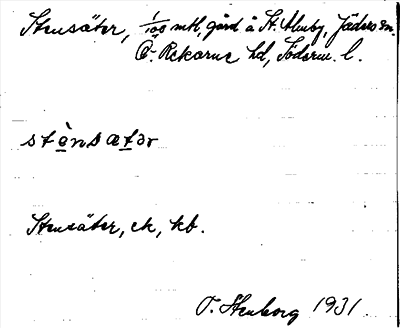 Stensäter, 1/100 mtl, gård å St. Åbby, Jäders sn.
Ö. Rekarne hd, Söderm. l.
stènsætər
Stensäter, ek, kb.
Stenborg 1931